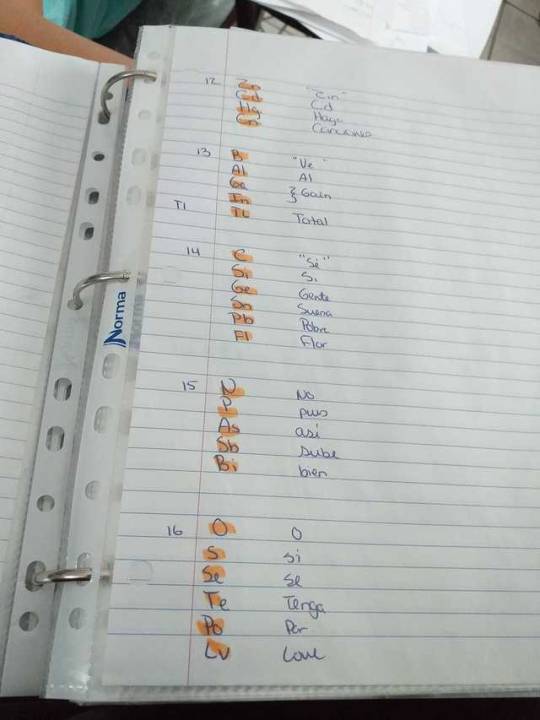 12 Zn "Zin"
Cd Cd
Hg Haga
Cn Canciones
13 B "Ve"
Al Al
Ga } Gain
In
Tl TL Total
14 C "Sé"
Si Si
Ge Gente
Sn Suena
Pb Pobre
Fl Flor
Norma
15 N No
P pus
As asi
Sb sube
Bi bien
16 O O
S si
Se se
Te Tenga
Po Por
Lv Love